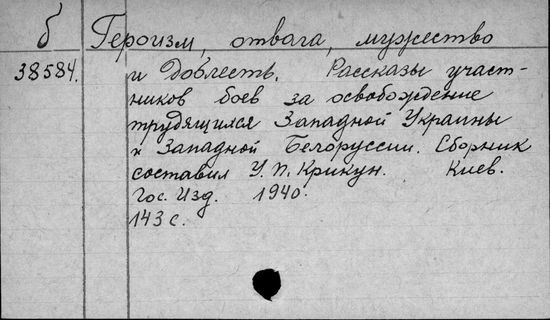 б Героизм, отвага, мужество
38584. и доблесть. Рассказы участ-
ников боев за освобождение
трудящихся Западной Украины
и Западной Белоруссии. Сборник
составил У. П. Крикун. Киев.
Гос. Изд. 1940.
143 с.